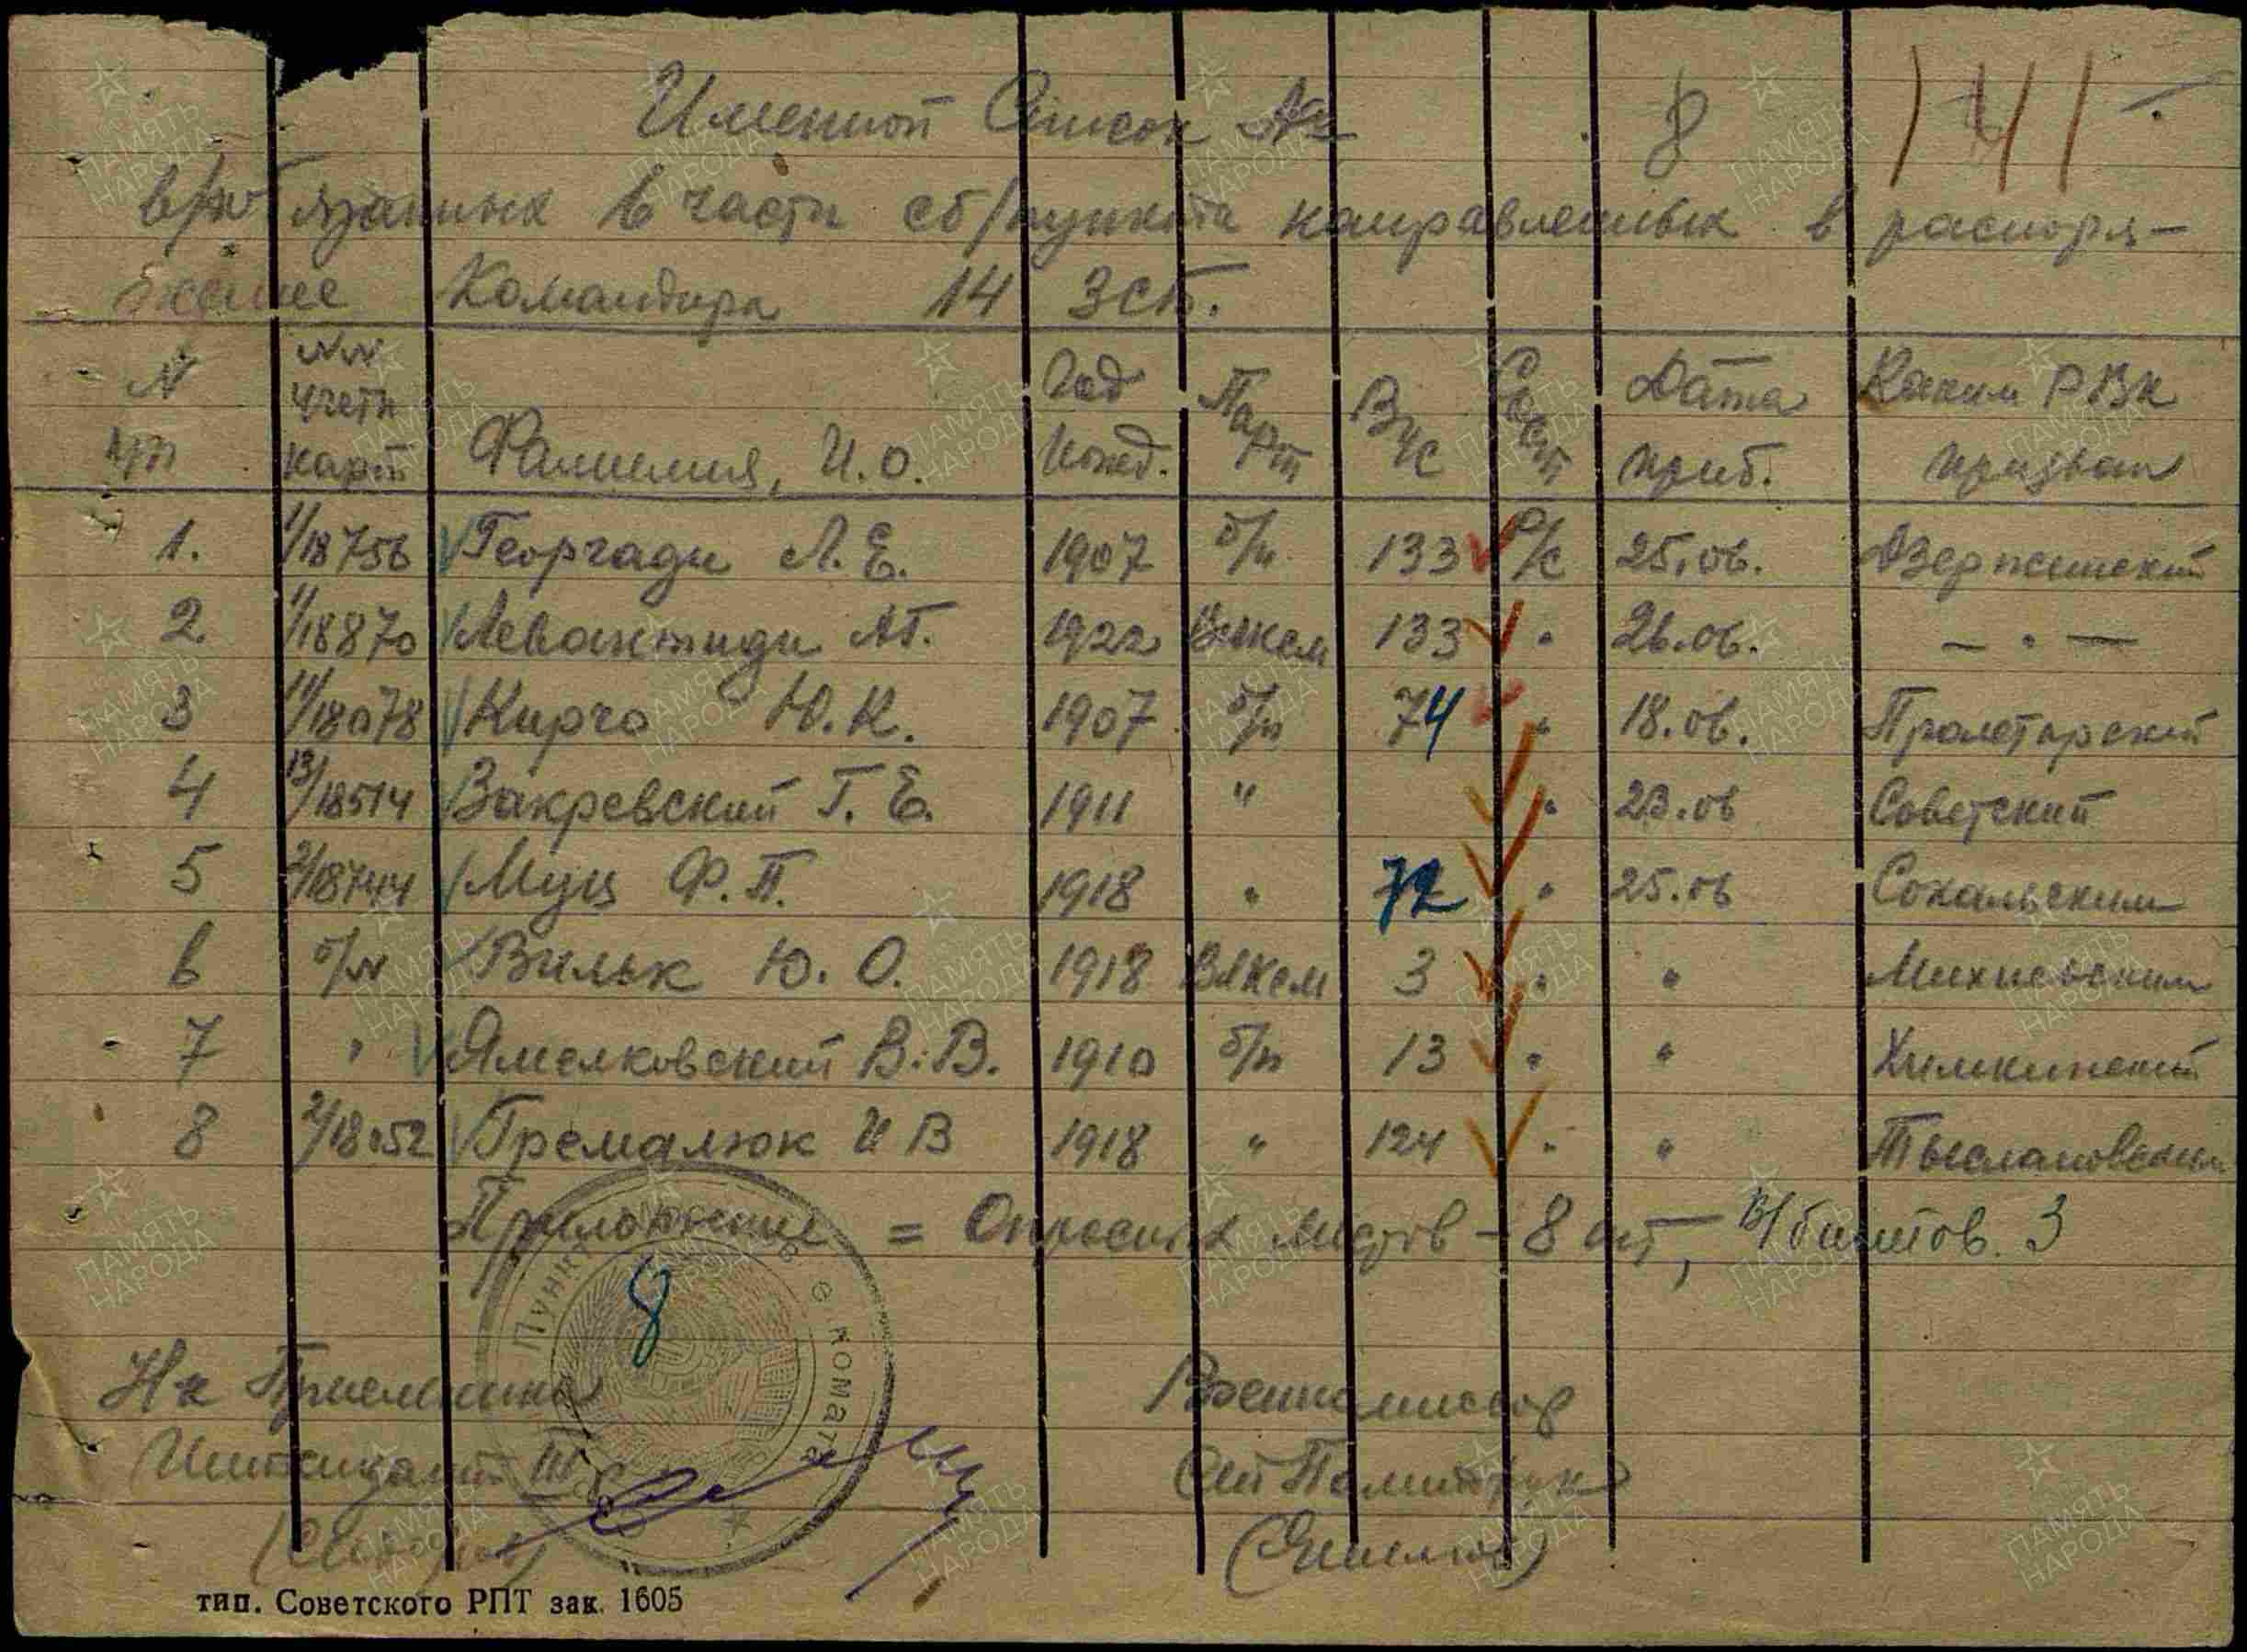 Именной Список №
8 141
в/обязанных в части сб/пункта направленных в распоря-
жение Командира 14 ЗСП.
N п/п NN учетн карт Фамилия, И.О. Год рожд. Парт ВУС Сост Дата приб. Каким РВК призван
1. 1/18756 Георгади Л.Е. 1907 б/п 133 р/с 25.06. Дзержинский
2 1/18870 Левантиди А.Г. 1922 Влксм 133 " 26.06. — " —
3 11/18078 Кирчо Ю.К. 1907 б/п 74 " 18.06. Пролетарский
4 13/18514 Закревский Г.Е. 1911 " " 23.06 Советский
5 2/18744 Муц Ф.П. 1918 " 72 " 25.06 Сокальским
6 б/N Вильк Ю.О. 1918 Влксм 3 " " Михневским
7 " Ямелковский В.В. 1910 б/п 13 " " Химкинский
8 2/18052 Гремалюк И В 1918 " 124 " " Тысмановским
Приложение = Опросных листов - 8 шт, В/билетов. 3
8
Пункт
комата
Н-к Приемника
Интендант III р
Военкомиссар
Ст Политрук
тип. Советского РПТ зак. 1605
ПАМЯТЬ НАРОДА